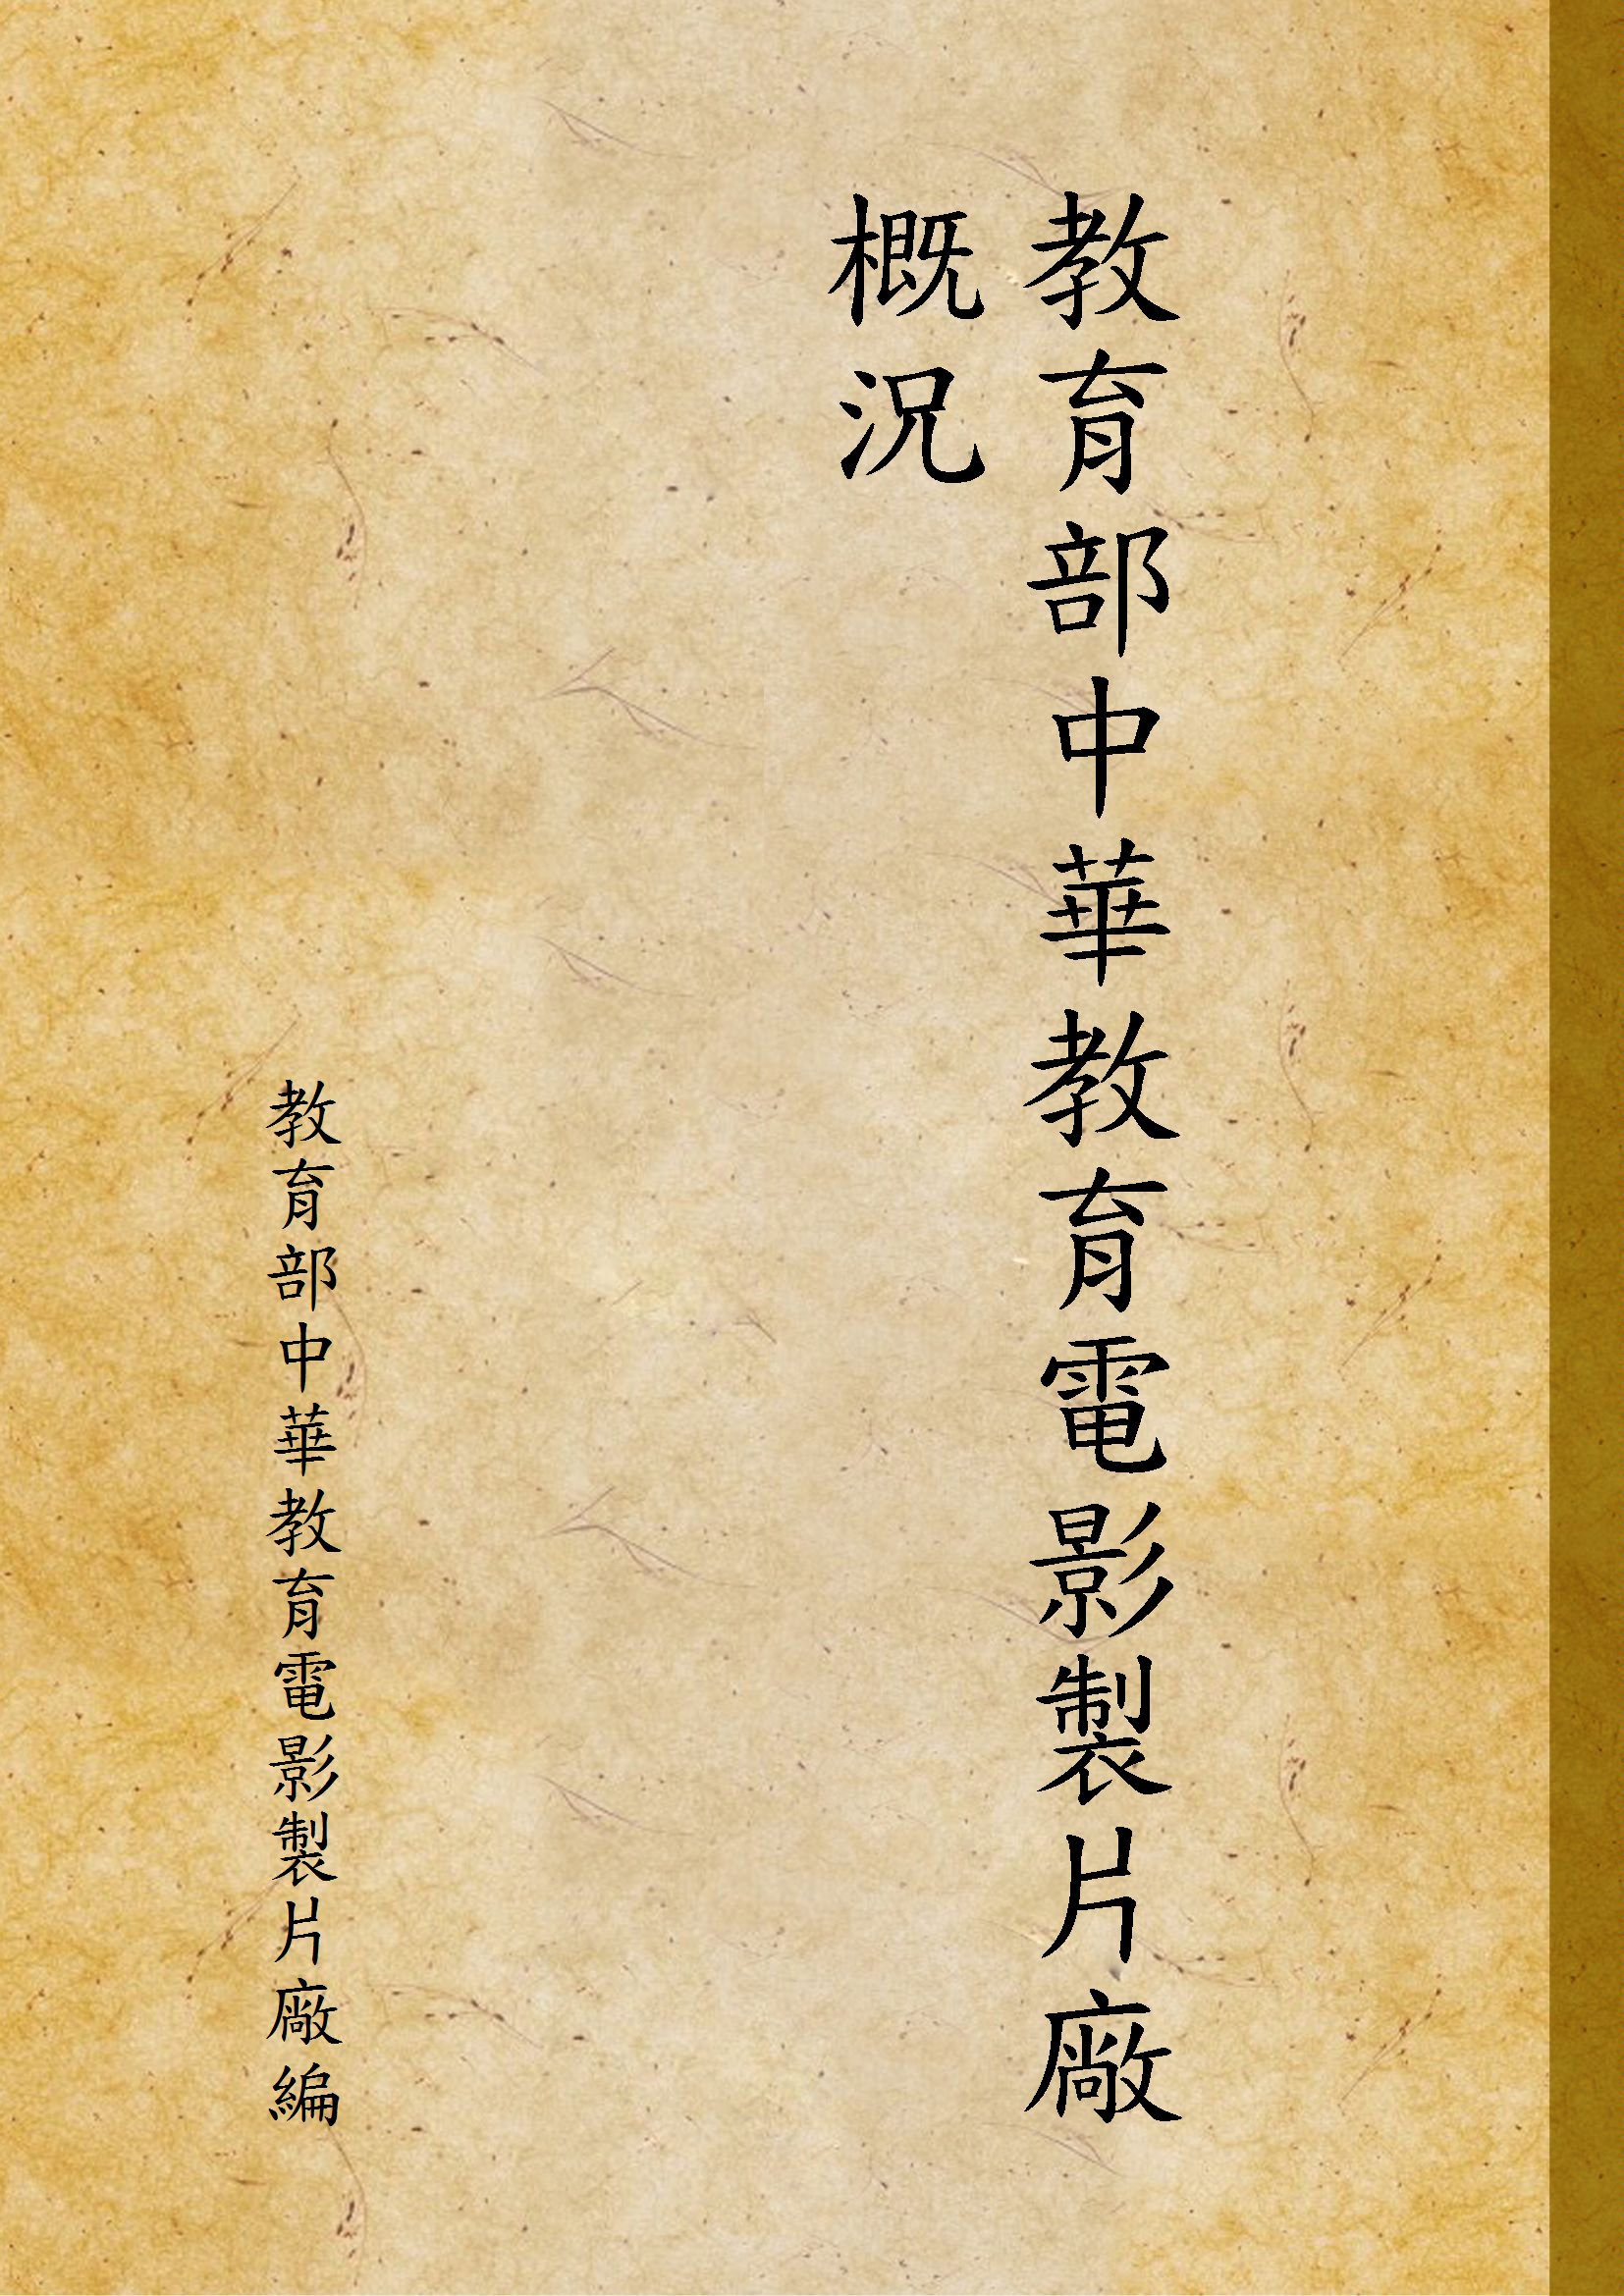 教育部中華教育電影製片廠
概況
教育部中華教育電影製片廠編